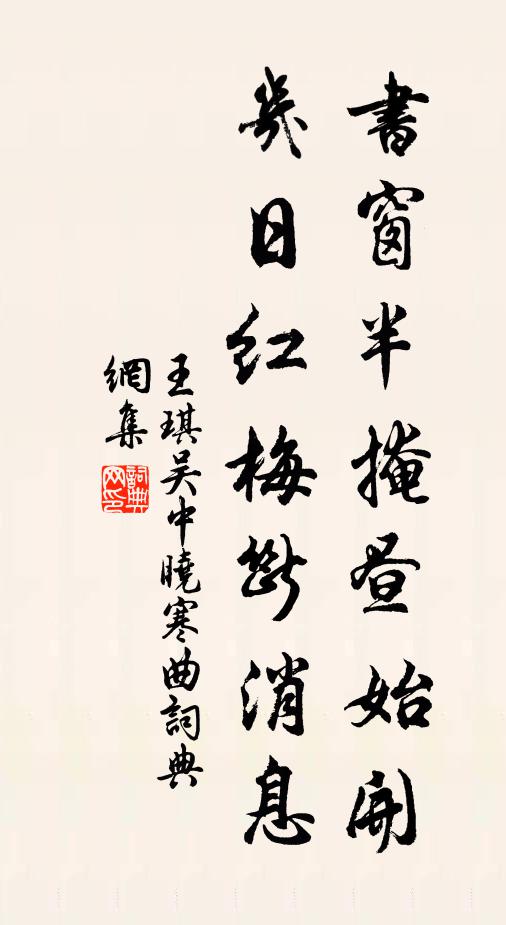 書窗半掩昼始開
幾日紅梅斷消息
王琪吴中曉寒曲詞典
網集
詞典
网印